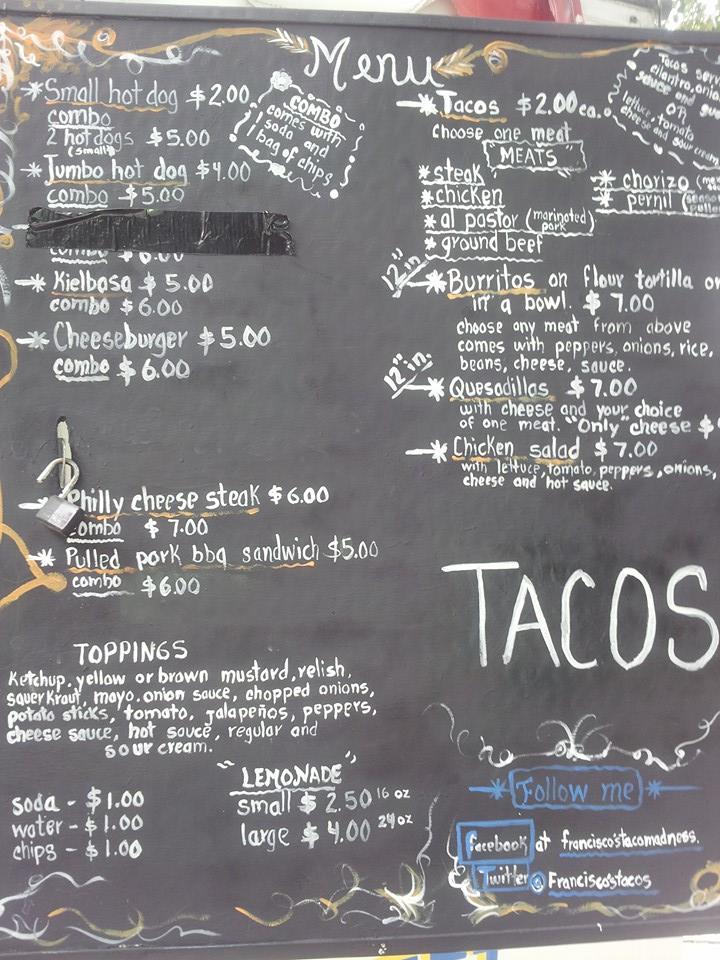 Menu
Small hot dog $2.00
combo
2 hot dogs $5.00
(small)
Jumbo hot dog $4.00
combo $5.00
combo $6.00
Kielbasa $5.00
combo $6.00
Cheeseburger $5.00
combo $6.00
Philly cheese steak $6.00
combo $7.00
Pulled pork bbq sandwich $5.00
combo $6.00
COMBO
comes with
1 soda and
1 bag of chips
TOPPINGS
Ketchup, yellow or brown mustard, relish,
sauerkraut, mayo, onion sauce, chopped onions,
potato sticks, tomato, jalapeños, peppers,
cheese sauce, hot sauce, regular and
sour cream.
soda - $1.00
water - $1.00
chips - $1.00
"LEMONADE"
small $2.50 16 oz
large $4.00 24 oz
Tacos
cilantro,
sauce and
or
lettuce, tomato
cheese and sour cream
Tacos $2.00 ea.
choose one meat
"MEATS"
steak
chicken
al pastor (marinated pork)
ground beef
chorizo
pernil
12" in.
Burritos on flour tortilla or
in a bowl. $7.00
choose any meat from above
comes with peppers, onions, rice,
beans, cheese, sauce.
12" in.
Quesadillas $7.00
with cheese and your choice
of one meat. "Only" cheese $
Chicken salad $7.00
with lettuce, tomato, peppers, onions,
cheese and hot sauce.
TACOS
Follow me
facebook at francisco'stacomadness.
Twitter @ Francisco'stacos